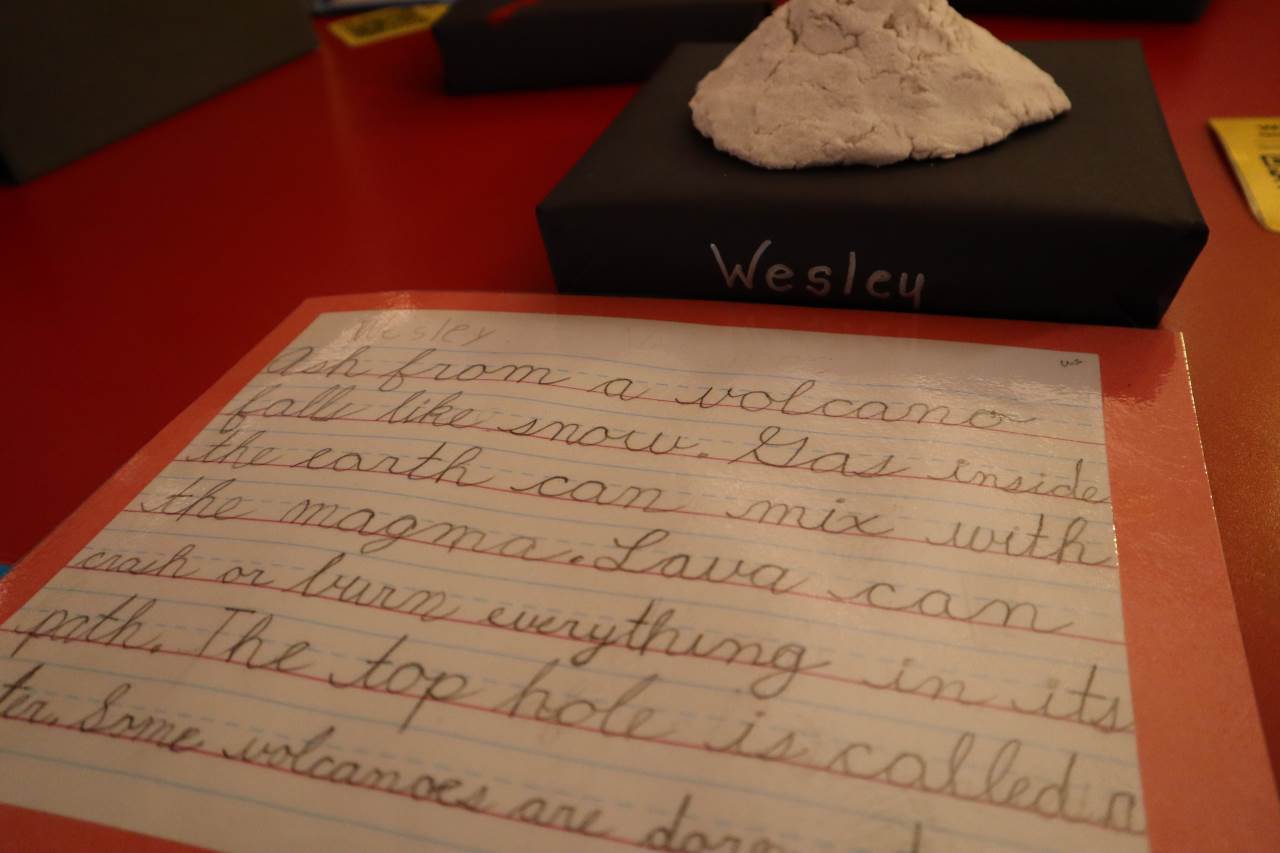 Wesley
Wesley
Ash from a volcano
falls like snow. Gas inside
the earth can mix with
the magma. Lava can
crash or burn everything in its
path. The top hole is called a
ter. Some volcanoes are